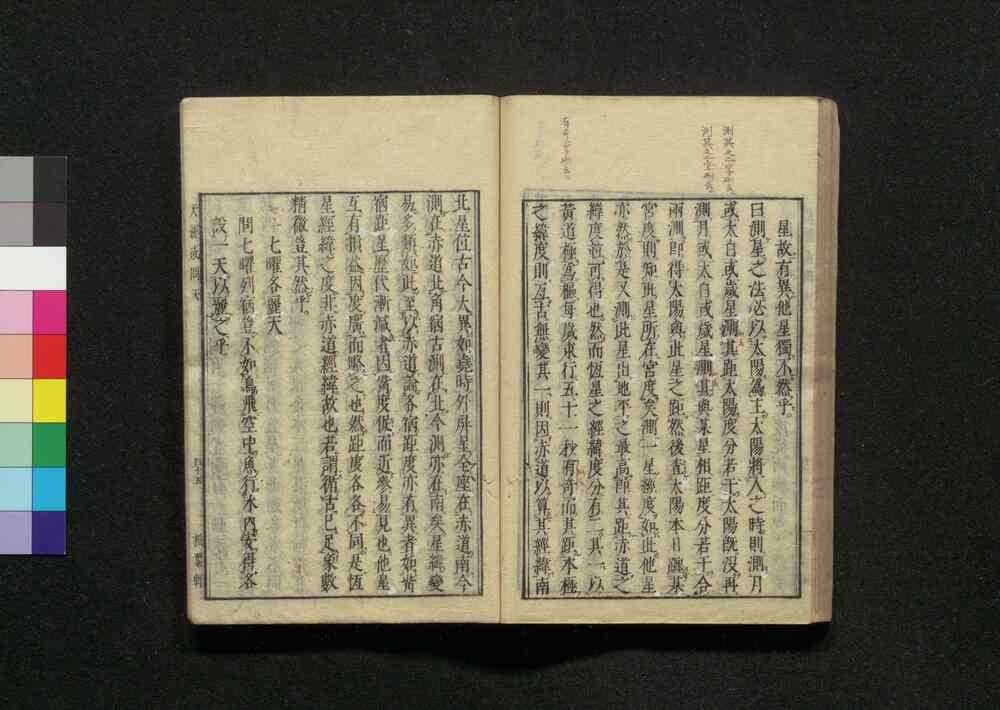 星故有異他星獨不然乎
曰測星之法必以太陽為主太陽將入之時則測月
或太白或歲星測其距太陽度分若干太陽既沒再
測月或太白或歲星測其與某星相距度分若干合
兩測即得太陽與此星之距然後查太陽本日躔某
宮度則知此星所在宮度矣測一星旣度如此他星
亦然於是又測此星出地平之最高即其距赤道之
緯度並可得也然而恆星之經緯度分有二其一以
黃道極為樞每歲東行五十一秒有奇而其距本極
之緯度則亙古無變其一則因赤道以算其經緯南
北星位古今大異如堯時外屏星全座在赤道南今
測在赤道北角宿古測在北今測亦在南矣星緯變
易多類如此至以赤道論各宿距度亦有異者如觜
宿距星歷代漸減者因觜度低而近參易見也他星
互有損益因度廣而略之也然距度各各不同是恆
星經緯之度非赤道經緯故也若謂循古已足象數
精微豈其然乎
七曜各麗天
問七曜列宿豈不如鳥飛空中魚行水內安得各
設一天以麗之乎
天經或問天